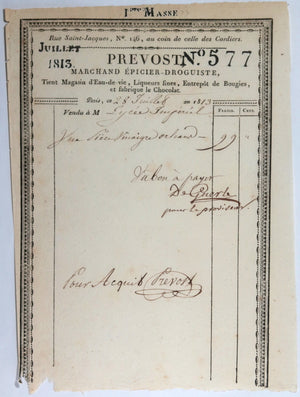 1ère Masse
Rue Saint-Jacques, No. 146, au coin de celle des Cordiers.
Juillet
1813.
PREVOST, No 577
MARCHAND ÉPICIER-DROGUISTE,
Tient Magasin d'Eau-de-vie, Liqueurs fines, Entrepôt de Bougies,
et fabrique le Chocolat.
Paris, ce 28 Juillet 1813
Vendu à M Lycée Impérial
Francs. Cent.
Une Pièce Vinaigre 99
Vu bon à payer
De Guerle
pour le proviseur
Pour Acquit Prevost